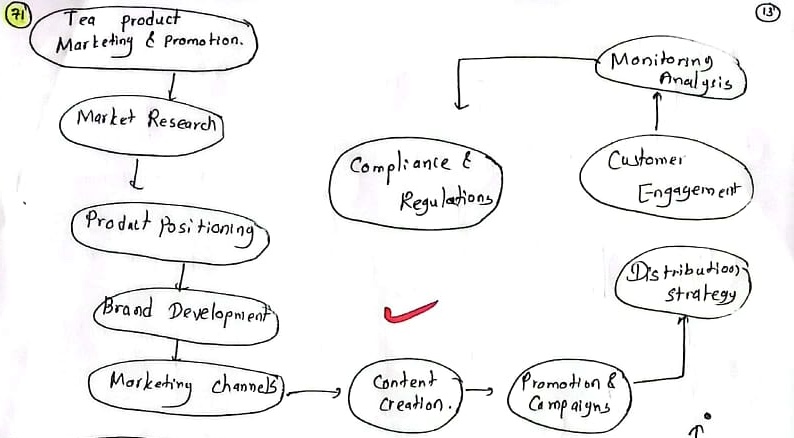 71
13
Tea product
Marketing & Promotion.
Market Research
Product Positioning
Brand Development
Marketing Channels
Content
Creation.
Promotion &
Campaigns
Distribution
Strategy
Customer
Engagement
Monitoring
Analysis
Compliance &
Regulations